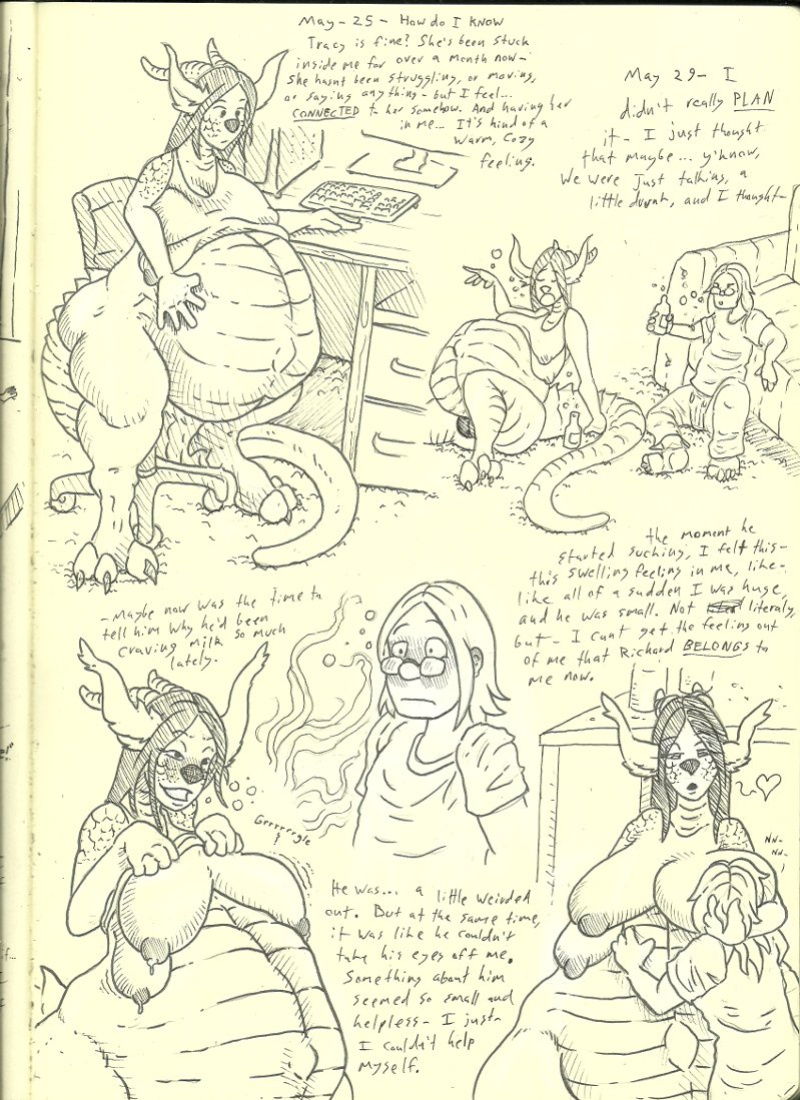 May - 25 - How do I know
Tracy is fine? She's been stuck
inside me for over a month now-
She hasnt been struggling, or moving,
or saying anything - but I feel...
CONNECTED to her somehow. And having her
in me... It's kind of a
warm, cozy
feeling.
May 29 - I
didn't really PLAN
it - I just thought
that maybe... y'know,
We were just talking, a
little drunk, and I thought-
-Maybe now was the time to
tell him why he'd been
craving milk so much
lately.
Grrrrrrgle
He was... a little weirded
out. But at the same time,
it was like he couldn't
take his eyes off me.
Something about him
seemed so small and
helpless - I just-
I couldn't help
myself.
the moment he
started sucking, I felt this-
this swelling feeling in me, like-
like all of a sudden I was huge,
and he was small. Not literaly,
but - I cant get the feeling out
of me that Richard BELONGS to
me now.
NN-
NN-